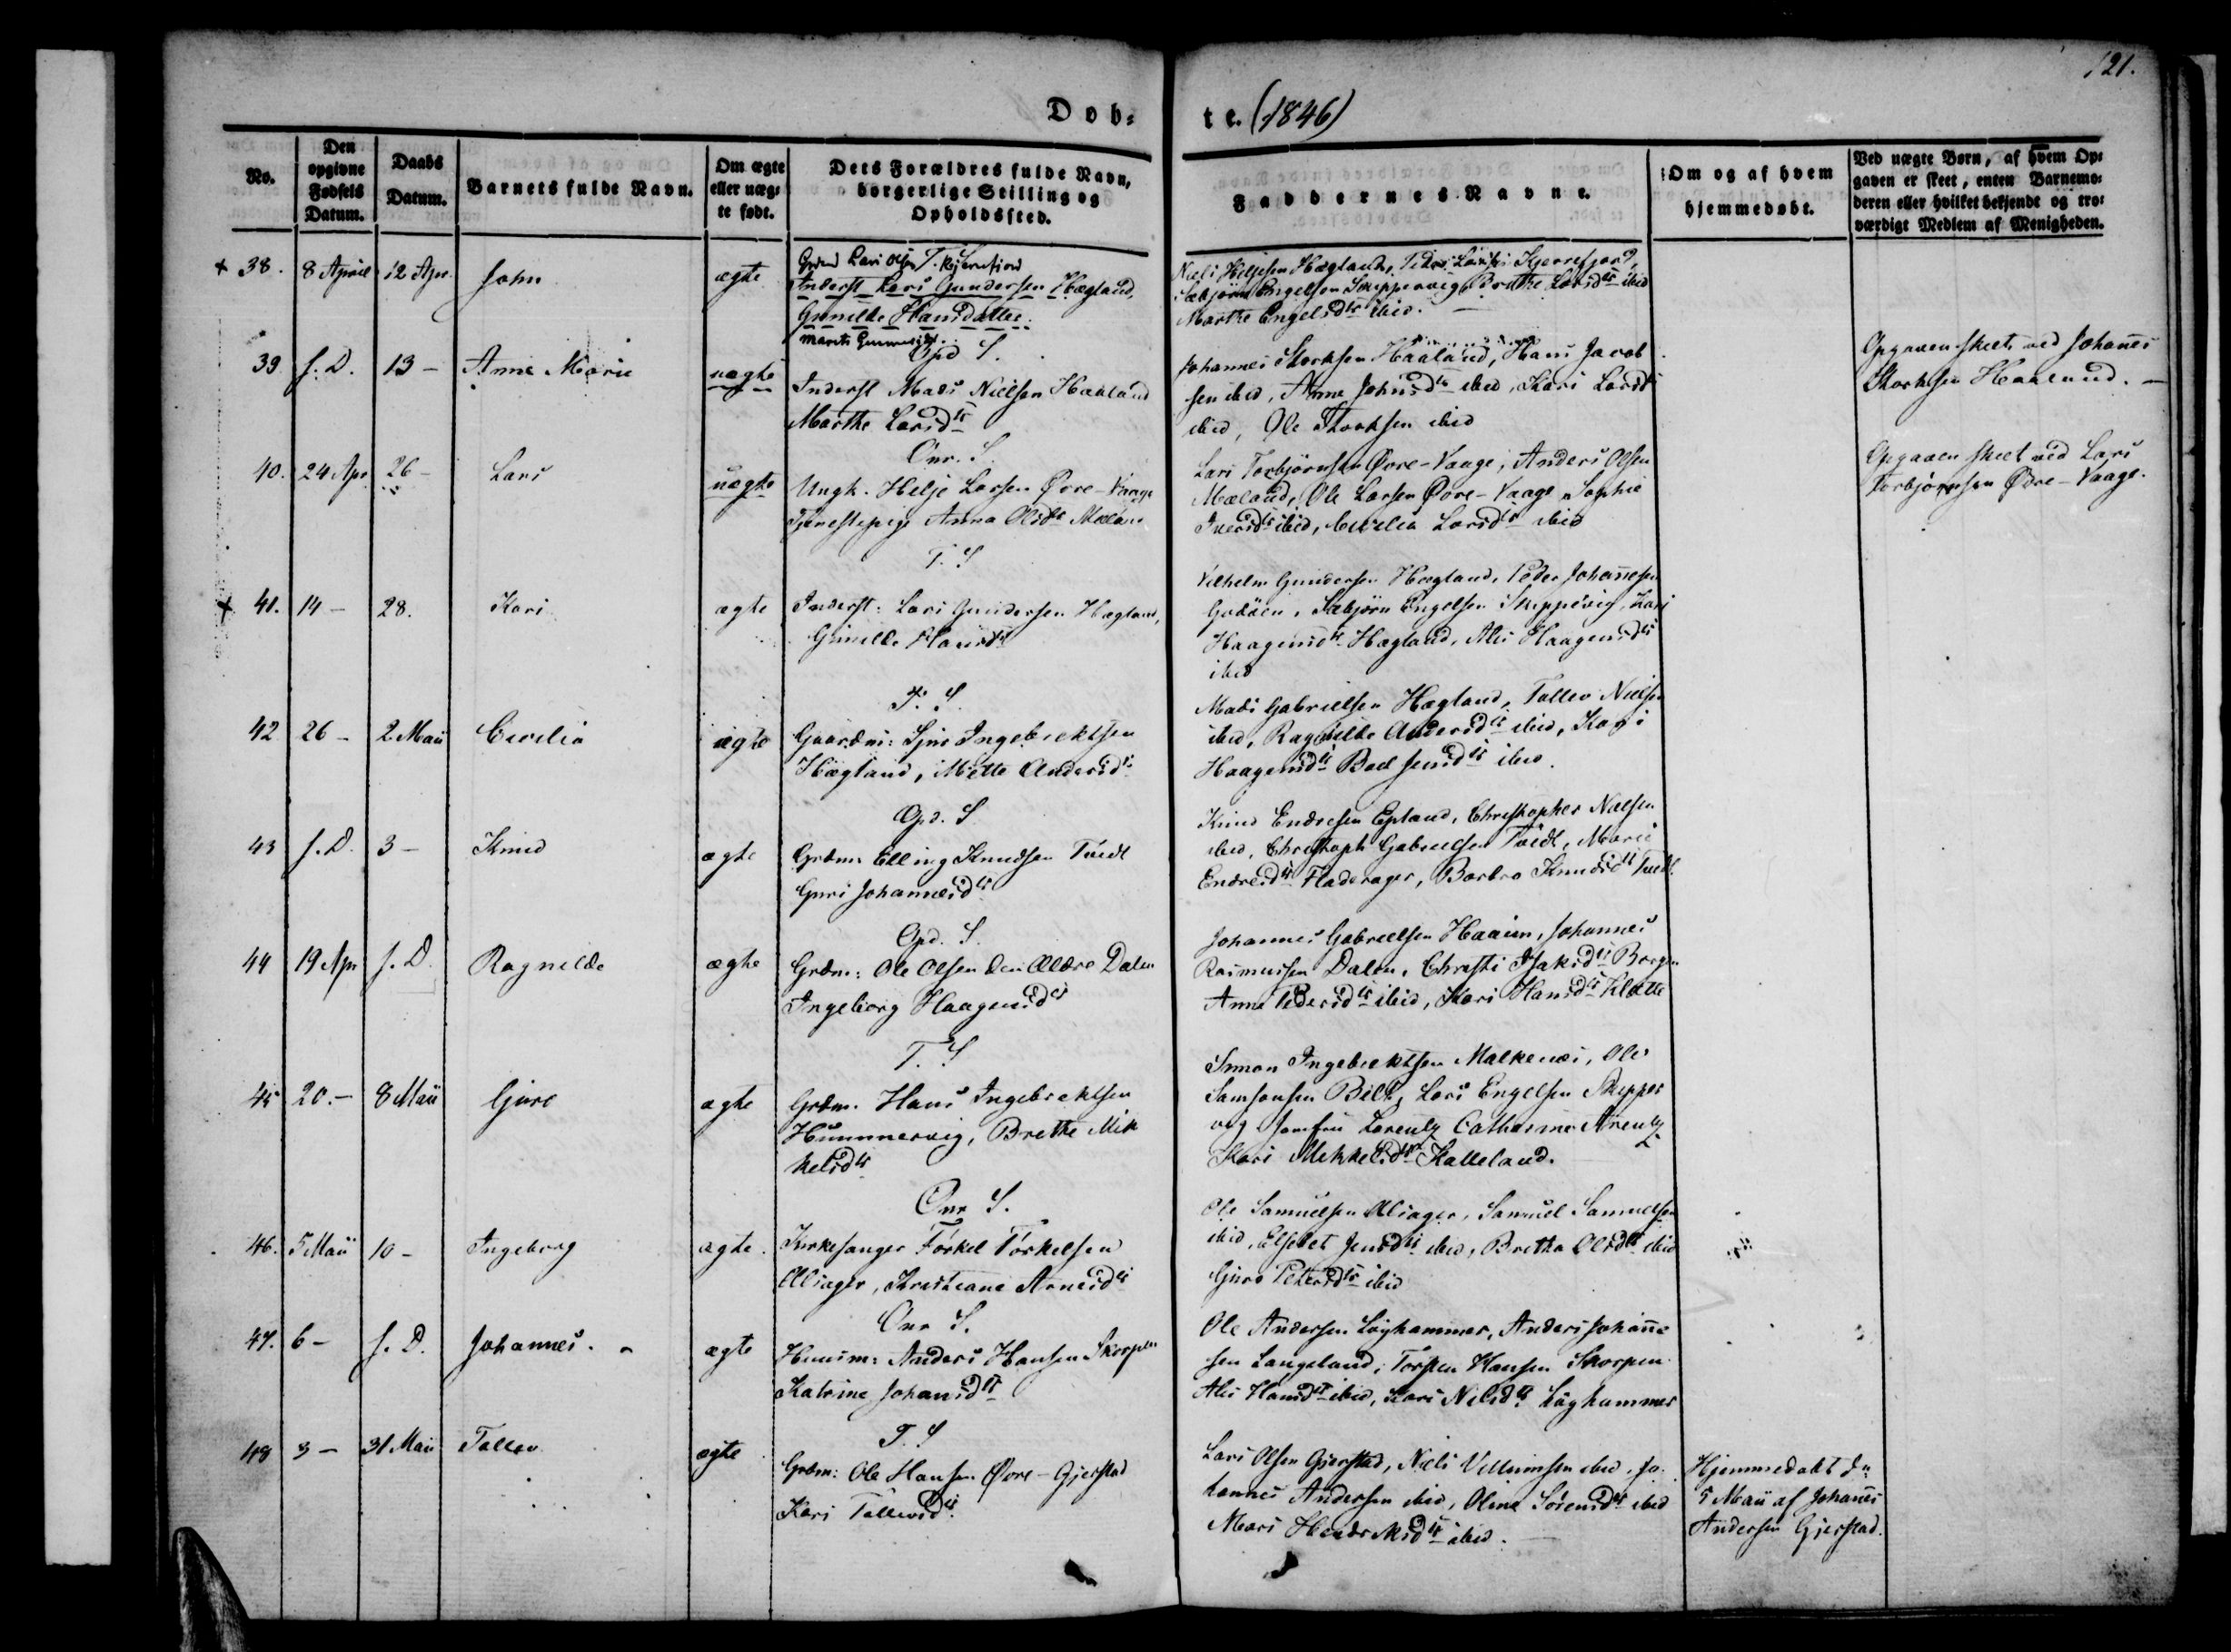 121.
Døb-
te. (1846)
No.
Den opgivne Fødsels Datum.
Daabs Datum.
Barnets fulde Navn.
Om ægte eller uægte født.
Dets Forældres fulde Navn, borgerlige Stilling og Opholdssted.
Faddernes Navne.
Om og af hvem hjemmedøbt.
Ved uægte Børn, af hvem Opgaven er skeet, enten Barnemoderen eller hvilket bekjendt og troværdigt Medlem af Menigheden.
38. 8 April 12 Apr. John ægte
Lars Olsen
Inderst Lars Gundersen Hægland,
Gunilde Hansdatter.
Niels Heljesen Hægland,
Sæbjørn Engelsen Skippervig, Larsdtr ibid
Marthe Engelsdtr ibid.
39. s. D. 13 - Anne Marie uægte
Opd S.
Inderst Mads Nielsen Haaland
Marthe Larsdtr
Johannes Storksen Haaland, Hans Jacob
sen ibid, Anne Johnsdtr ibid, Kari Larsdtr
ibid, Ole Storksen ibid
Opgaven skeet ved Johannes
Storksen Haaland.
40. 24 Apr 26 - Lars uægte
Onr. S.
Ungk. Helje Larsen Øvre-Vaage
Tjenestepige Anna Olsdtr Mæland
Lars Torbjørnsen Øvre-Vaage, Anders Olsen
Mæland, Ole Larsen Øvre-Vaage, Sophie
Iversdtr ibid, Cecilia Larsdtr ibid
Opgaven skeet ved Lars
Torbjørnsen Øvre-Vaage.
41. 14 - 28. Kari ægte
T. S
Inderst: Lars Gundersen Hægland,
Gunilde Hansdtr
Vilhelm Gundersen Hægland, Peder Johannesen
Godøen, Sæbjørn Engelsen Skippevig, Kari
Haagensdtr Hægland, Alis Haagensdtr
ibid
42 26 - 2 Maii Cecilia ægte
T. S.
Gaardm: Sjur Ingebrektsen
Hægland, Mette Andersdtr
Mads Gabrielsen Hægland, Tollev Nielsen
ibid, Ragnilde Andersdtr ibid, Kari
Haagensdtr ibid.
43 s. D. 3 - Knud ægte
Opd. S
Grdm. Elling Knudsen Tvedt
Guri Johannesdtr
Knud Endresen Epland, Christopher Nielsen
ibid, Christoph Gabrielsen Tvedt, Marie
Endresdtr Fladerager, Barbro Knudsdtr Tvedt.
44 19 Apr s. D. Ragnilde ægte
Opd. S.
Grdm: Ole Olsen den Ældre Dalen
Ingeborg Haagensdtr
Johannes Gabrielsen Haaien, Johannes
Rasmussen Dalen, Christi Isaksdtr Borgen
Anne Pedersdtr ibid, Kari Hansdtr Klætte
45 20. - 8 Maii Guro ægte
T. S
Grdm. Hans Ingebrektsen
Hummervig, Brethe Mik
kelsdtr
Simon Ingebrektsen Malkenæs, Ole
Samsonsen Belt, Lars Engelsen Skipper
vig Jomfru Lorentz Catharina Arentz
Kari Mikkelsdtr Kalleland.
46. 5 Maii 10 - Ingeborg ægte.
Onr S.
Kirkesanger Torkel Torkelsen
Aliager, Christiane Arnesdtr
Ole Samuelsen Aliager, Samuel Samuelsen
ibid, Elsebet Jensdtr ibid, Brethe Olsdtr ibid
Guro Petersdtr ibid
47. 6 - s. D. Johannes. ægte
Onr S.
Huusm: Anders Hansen Skorpen
Katrine Johansdtr
Ole Andersen Løghammer, Anders Johanne
sen Langeland, Torsten Hansen Skorpen
Alis Hansdtr ibid, Kari Nilsdtr Løghammer
48 3 - 31 Maii Tollev ægte
T. S
Grdm: Ole Hansen Øvre-Gjerstad
Kari Tollevsdtr
Lars Olsen Gjerstad, Niels Villumsen ibid, Jo
hannes Andersen ibid, Oline Sørensdtr ibid
Mari Hendriksdtr ibid.
Hjemmedøbt dn
5 Maii af Johannes
Andersen Gjerstad.